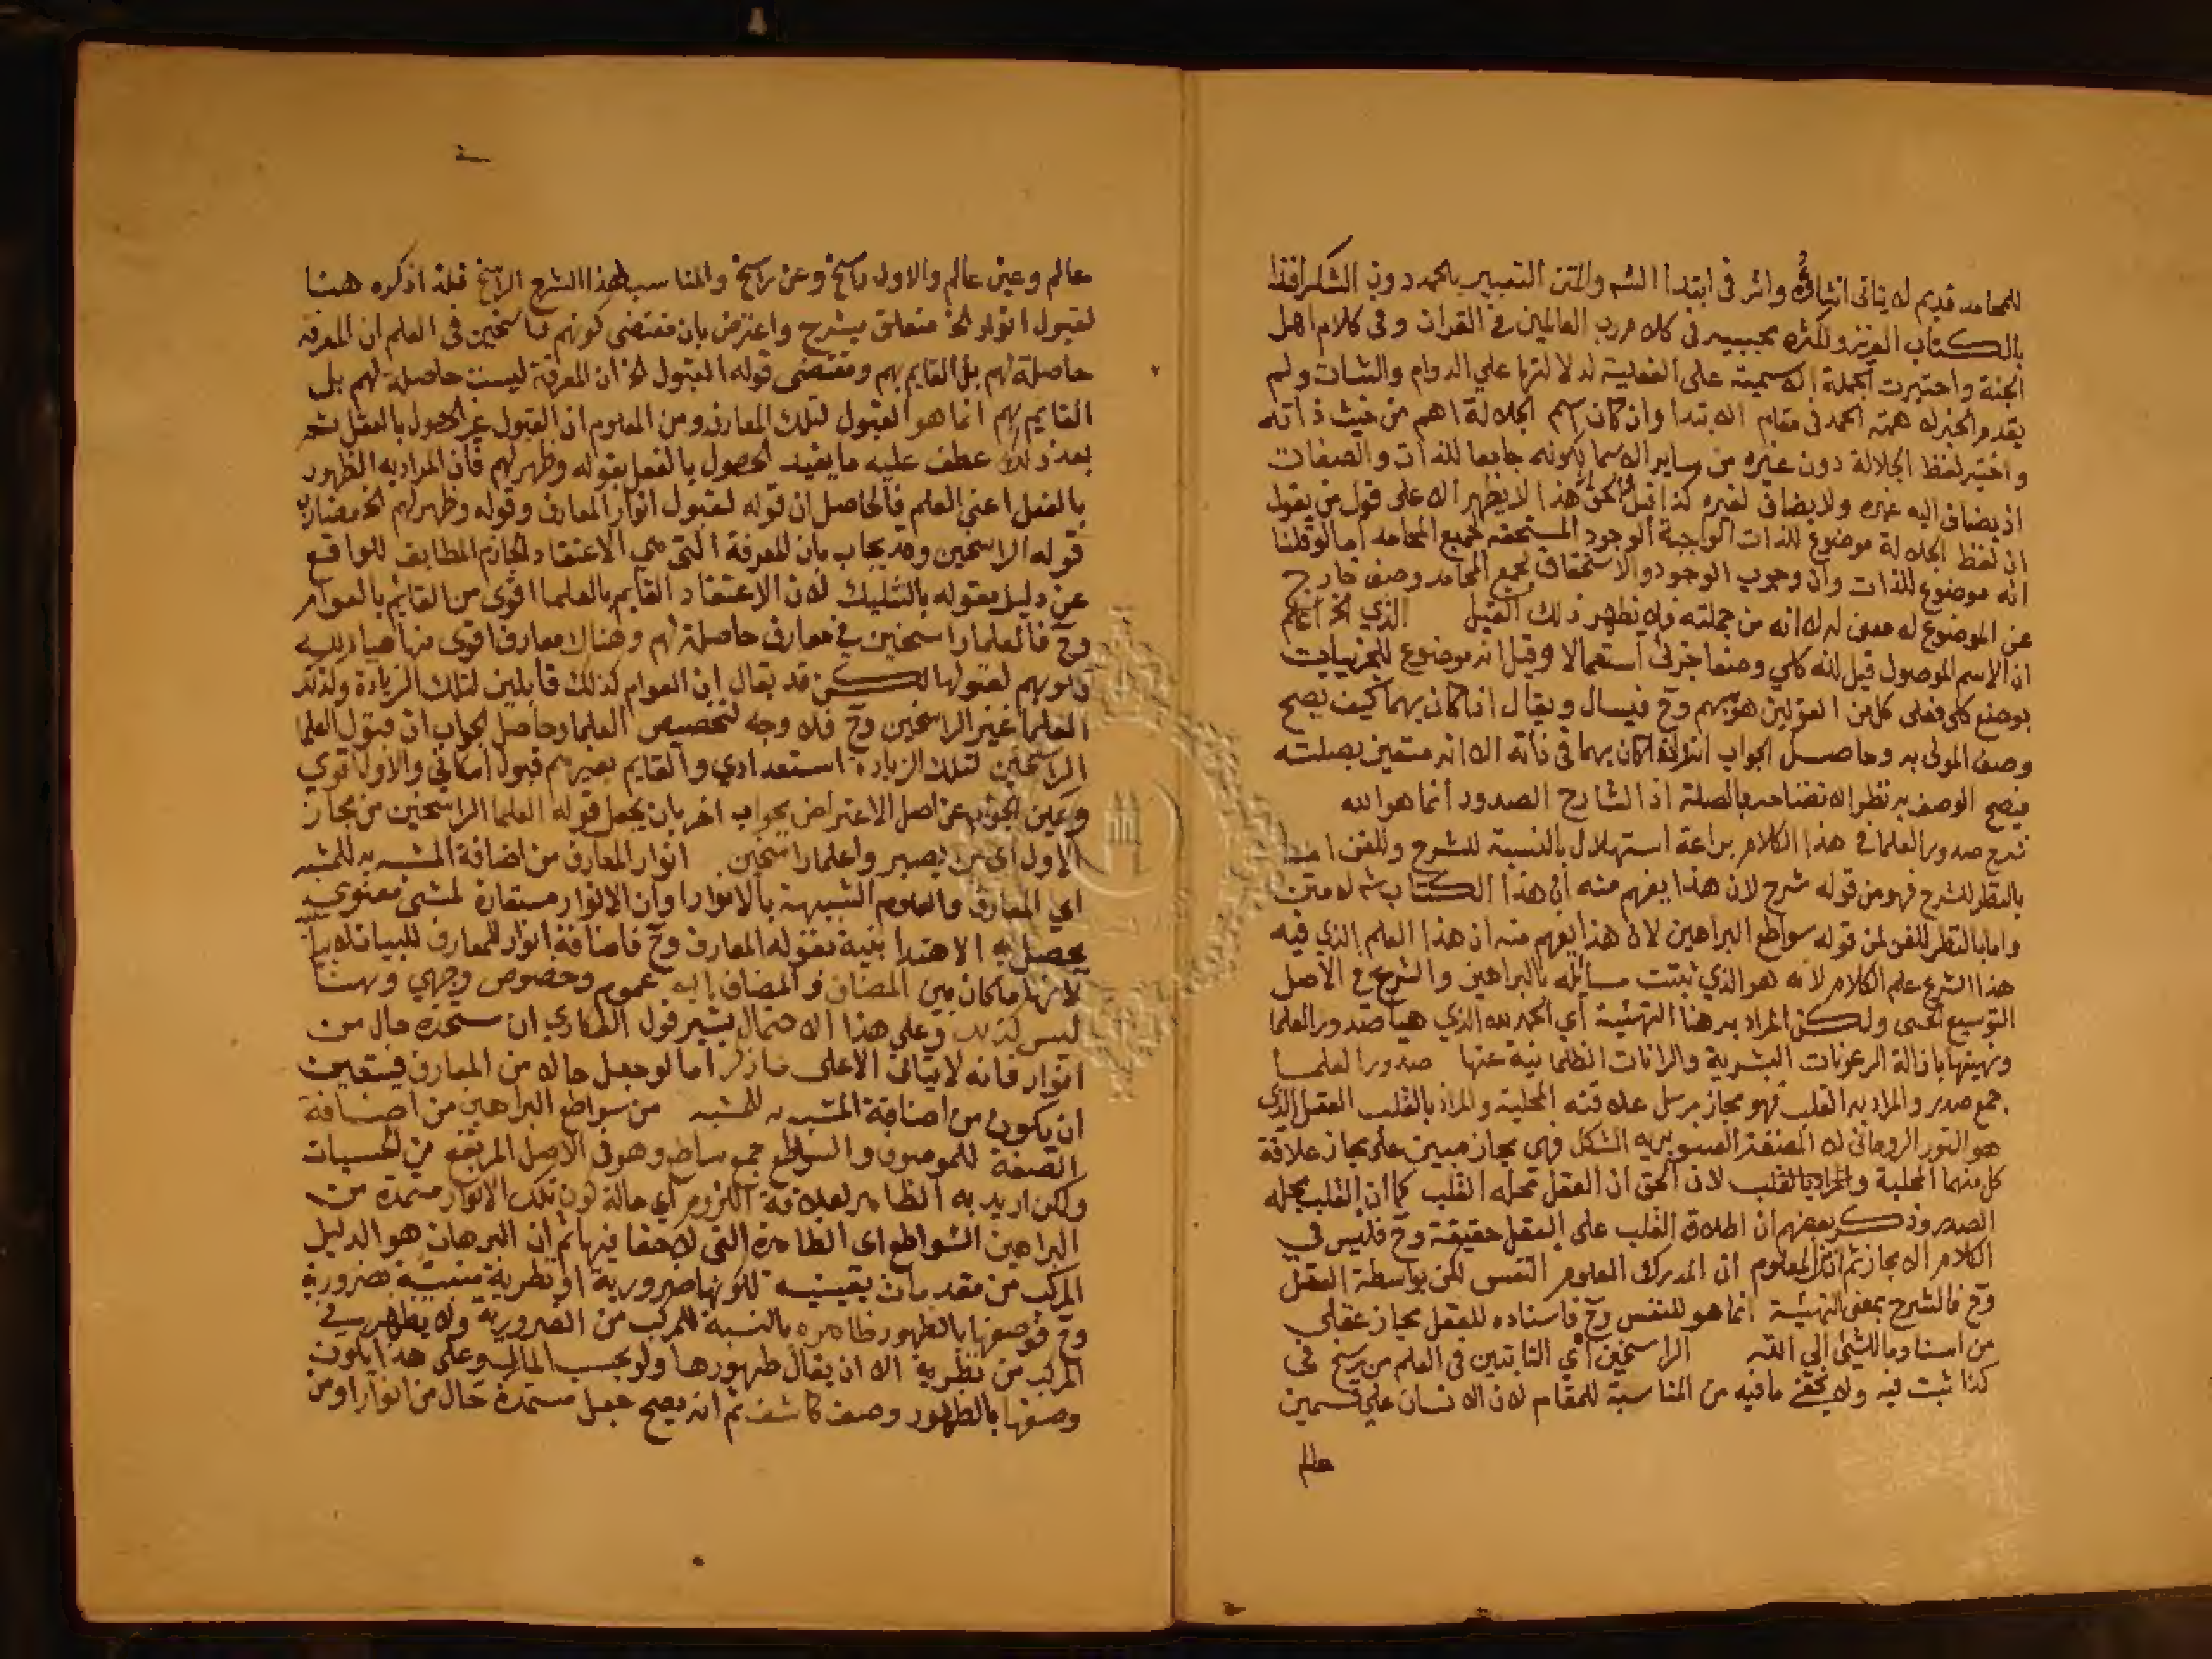 للمحامد قديم لا يتاتى انشاؤه واثر فى ابتدا الشم والمتن التعبير بالحمد دون الشكر اقتدا
بالكتاب العزيز ولكثره مجييه فى كلام رب العالمين فى القران وفى كلام اهل
الجنة واختيرت الجملة الاسمية على الفعلية لدلالتها علي الدوام والثبات ولم
يقدم الخبر لاهمية الحمد فى مقام الابتدا وان كان اسم الجلالة اهم من حيث ذاته
واختير لفظ الجلالة دون غيره من ساير الاسما لكونه جامعا للذات والصفات
اذ يضاف اليه غيره ولا يضاف لغيره كذا قيل لكن هذا لا يظهر الا على قول من يقول
ان لفظ الجلالة موضوع للذات الواجبة الوجود المستحقه لجميع المحامد اما لو قلنا
انه موضوع للذات وان وجوب الوجود والاستحقاق لجميع المحامد وصف خارج
عن الموضوع له معين له لا انه من جملته فلا يظهر ذلك القيل الذي الخ اعلم
ان الاسم الموصول قيل انه كلي وضعا جزئى استعمالا وقيل انه موضوع للجزييات
بوضع كلى فعلى كل من القولين هو مبهم وح فيسال ويقال اذا كان مبهما كيف يصح
وصف المولى به وحاصل الجواب انه وان كان مبهما فى ذاته الا انه متعين بصلته
فيصح الوصف به نظرا لاتضاحه بالصلة اذ الشارح الصدور انما هو الله
شرح صدور العلما فى هذا الكلام براعة استهلال بالنسبة للشرح وللفن اما
بالنظر للشرح فهو من قوله شرح لان هذا يفهم منه ان هذا الكتاب شم لا متن
واما بالنظر للفن فمن قوله سواطع البراهين لان هذا يفهم منه ان هذا العلم الذي فيه
هذا الشرح علم الكلام لانه هو الذي تثبت مسايله بالبراهين والشرح فى الاصل
التوسيع الحسى ولكن المراد به هنا التهيئية أي الحمد لله الذي هيا صدور العلما
وتهيئها بازالة الرعونات البشرية والرانات الظلمانية عنها صدور العلما
جمع صدر والمراد به القلب فهو مجاز مرسل علاقته المحلية والمراد بالقلب العقل الذي
هو النور الروحانى لا المضغة الصنوبرية الشكل فهى مجاز مبين على مجاز علاقة
كل منهما المحلية والمراد بالقلب لان الحق ان العقل محله القلب كما ان القلب محله
الصدر وذكر بعضهم ان اطلاق القلب على العقل حقيقة وح فليس في
الكلام الا مجاز ثم ان المعلوم ان المدرك المعلوم النفس لكن بواسطة العقل
وح فالشرح بمعنى التهيئية انما هو للنفس وح فاسناده للعقل مجاز عقلي
من اسناد ما للشئ الى الته الراسخين أي الثابتين فى العلم من رسخ فى
كذا ثبت فيه ولا يخفى ما فيه من المناسبة للمقام لان الانسان علي قسمين
عالم
عالم وغير عالم والاول راسخ وغير راسخ والمناسب لهذا الشرح الراسخ فلذا ذكره هنا
لقبول انوار الخ متعلق بشرح واعترض بان مقتضى كونهم راسخين فى العلم ان المعرفه
حاصلة لهم بل القايم بهم ومقتضى قوله القبول الخ ان المعرفة ليست حاصلة لهم بل
القايم بهم انما هو القبول لتلك المعارف ومن المعلوم ان القبول غير الحصول بالفعل ثم
بعد ذلك عطف عليه ما يفيد الحصول بالفعل بقوله وظهر لهم فان المراد به الظهور
بالفعل اعنى العلم فالحاصل ان قوله لقبول انوار المعارف وقوله وظهر لهم الخ مضاد
قوله الراسخين وقد يجاب بان المعرفة التى هي الاعتقاد الجازم المطابق للواقع
عن دليل مقوله بالتشكيك لان الاعتقاد القايم بالعلما اقوى من القايم بالعوام
وح فالعلما راسخين في معارف حاصلة لهم وهناك معارف اقوى منها هيا الله
قلوبهم لقبولها لكن قد يقال ان العوام كذلك قابلين لتلك الزيادة وكذلك
العلما غير الراسخين وح فلا وجه لتخصيص العلما وحاصل الجواب ان قبول العلما
الراسخين لتلك الزيادة استعدادي والقايم بغيرهم قبول امكاني والاول اقوي
وعين الجواب عن اصل الاعتراض بجواب اخر بان يجعل قوله العلما الراسخين من مجاز
الاول اى من يصير واعلما راسخين انوار المعارف من اضافة المشبه به للمشبه
اي المعارف والعلوم الشبيهة بالانوار او ان الانوار مستعارة لمشئ معنوي
يحصل به الاهتدا بنية بقوله المعارف وح فاضافة انوار للمعارف للبيان لا بيانية
لانها ما كان بين المضاف والمضاف اليه عموم وخصوص وجهي وهنا
ليس كذلك وعلى هذا الاحتمال يشير قول السكاري ان مستمدة حال من
انوار فانه لا يتاتى الا على ما ذكر اما لو جعل حالا من المعارف فيتعين
ان يكون من اضافة المشبه به للمشبه من سواطع البراهين من اضافة
الصفة للموصوف والسواطع جمع ساطع وهو فى الاصل المرتفع من الحسيات
ولكن اريد به الظاهر لعلاقة اللزوم أي حالة كون تلك الانوار مستمدة من
البراهين السواطع اى الظاهرة التى لا خفا فيها ثم ان البرهان هو الدليل
المركب من مقدمات يقينيه لكونها ضرورية او نظرية مثبتة بضرورية
وح فوصفها بالظهور ظاهره بالنسبة للمركب من الضرورية ولا يظهر في
المركب من نظرية الا ان يقال ظهورها ولو بحسب المال وعلى هذا يكون
وصفها بالظهور وصف كاشف ثم انه يصح جعل مستمدة حال من انوار او من